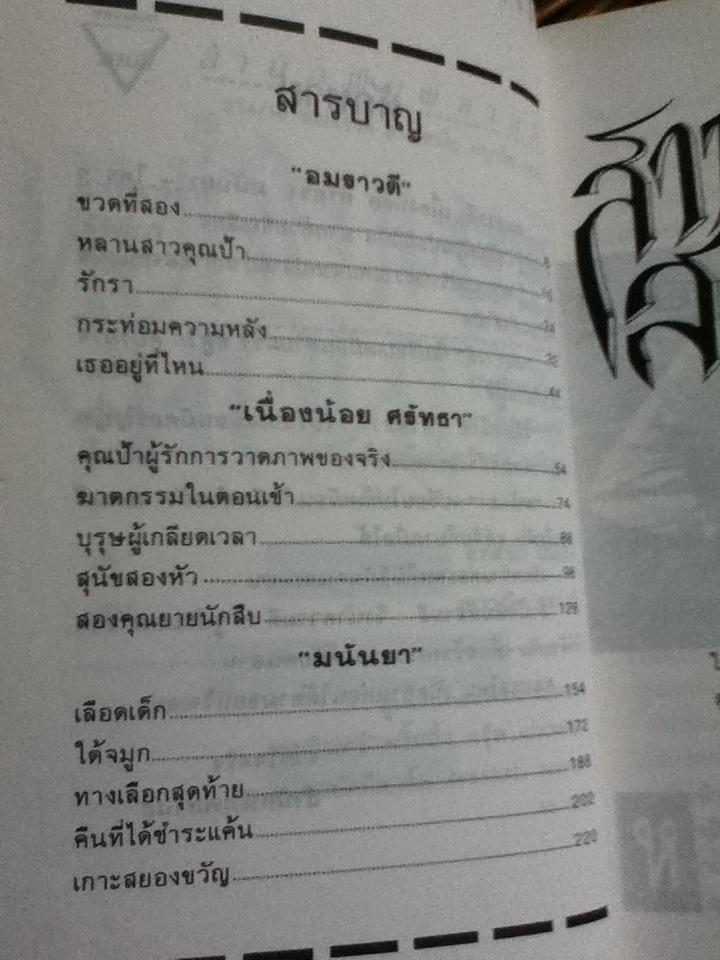 สารบาญ
"อมราวดี"
ขวดที่สอง
หลานสาวคุณป้า
รักรา
กระท่อมความหลัง
เธออยู่ที่ไหน
"เนื่องน้อย ศรัทธา"
คุณป้าผู้รักการวาดภาพของจริง 54
ฆาตกรรมในตอนเช้า 74
บุรุษผู้เกลียดเวลา
สุนัขสองหัว
สองคุณยายนักสืบ
"มนันยา"
เลือดเด็ก 154
ใต้จมูก 172
ทางเลือกสุดท้าย 188
คืนที่ได้ชำระแค้น 202
เกาะสยองขวัญ 220